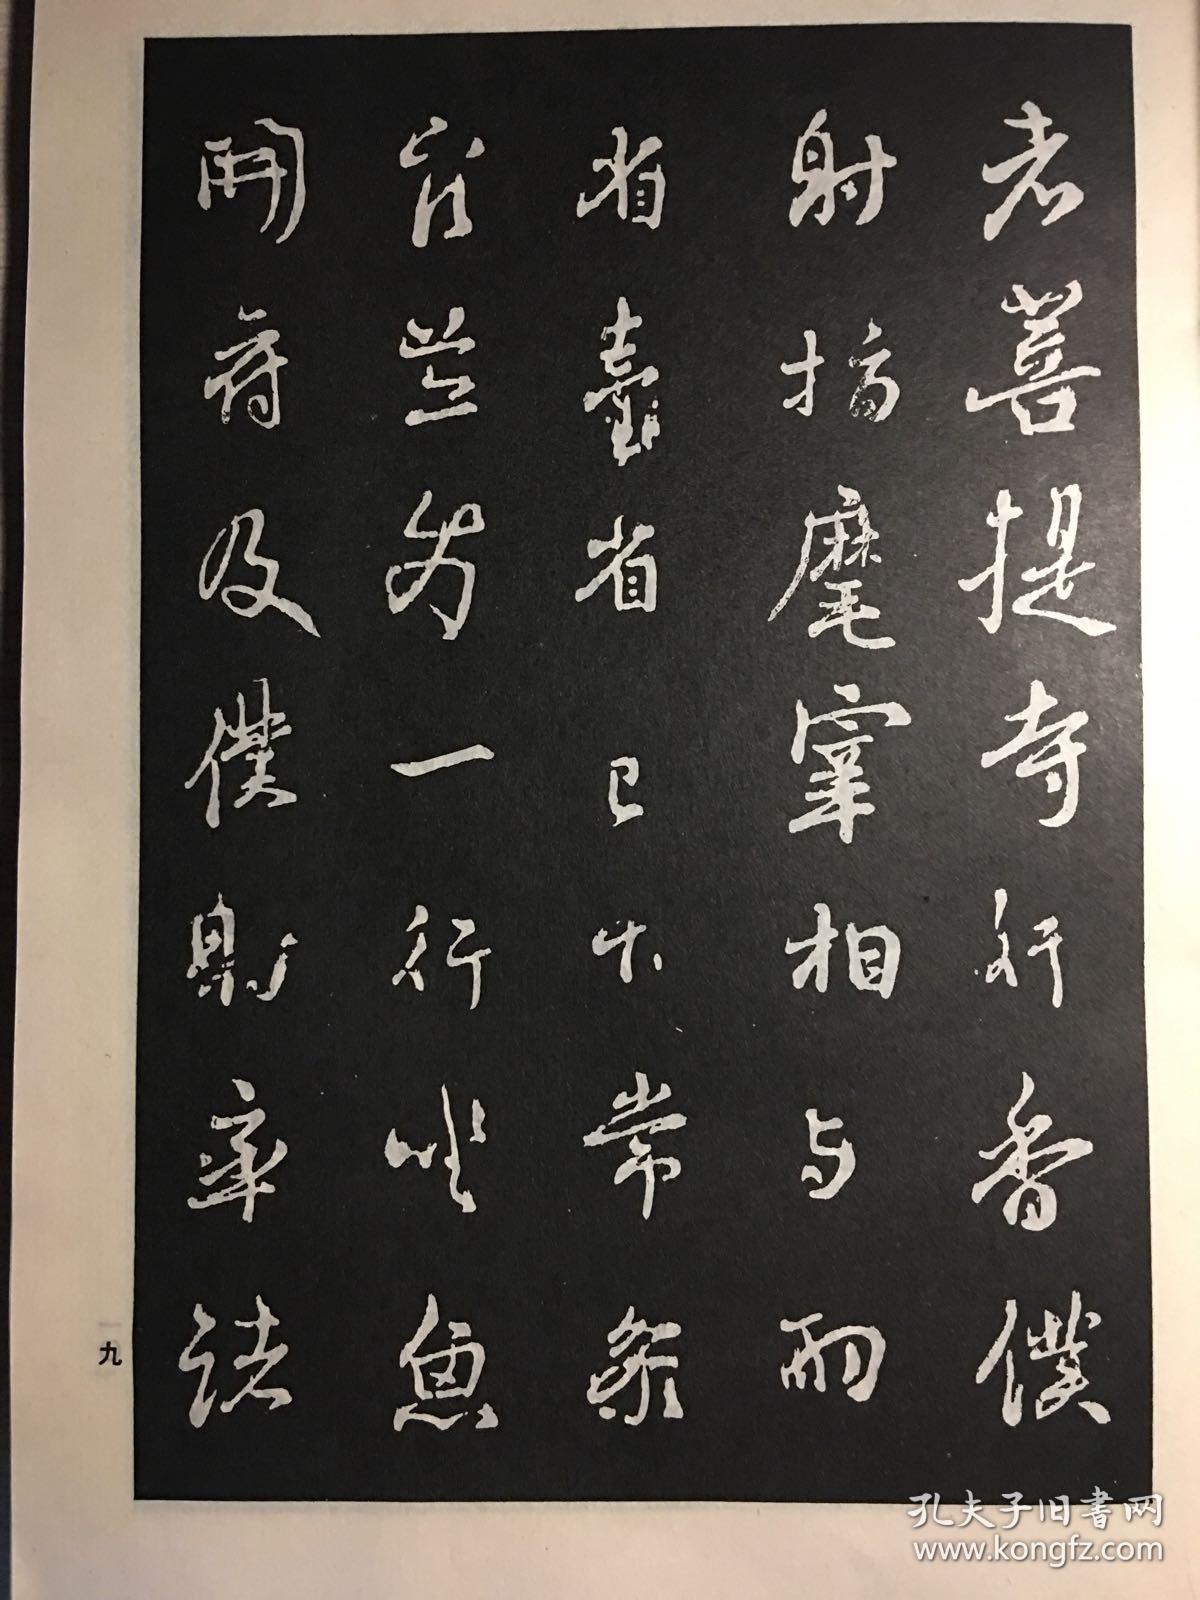 者菩提寺行香僕
射指麾宰相与兩
省臺省已下常參
官並為一行坐魚
開府及僕射率諸
九
孔夫子旧书网
www.kongfz.com